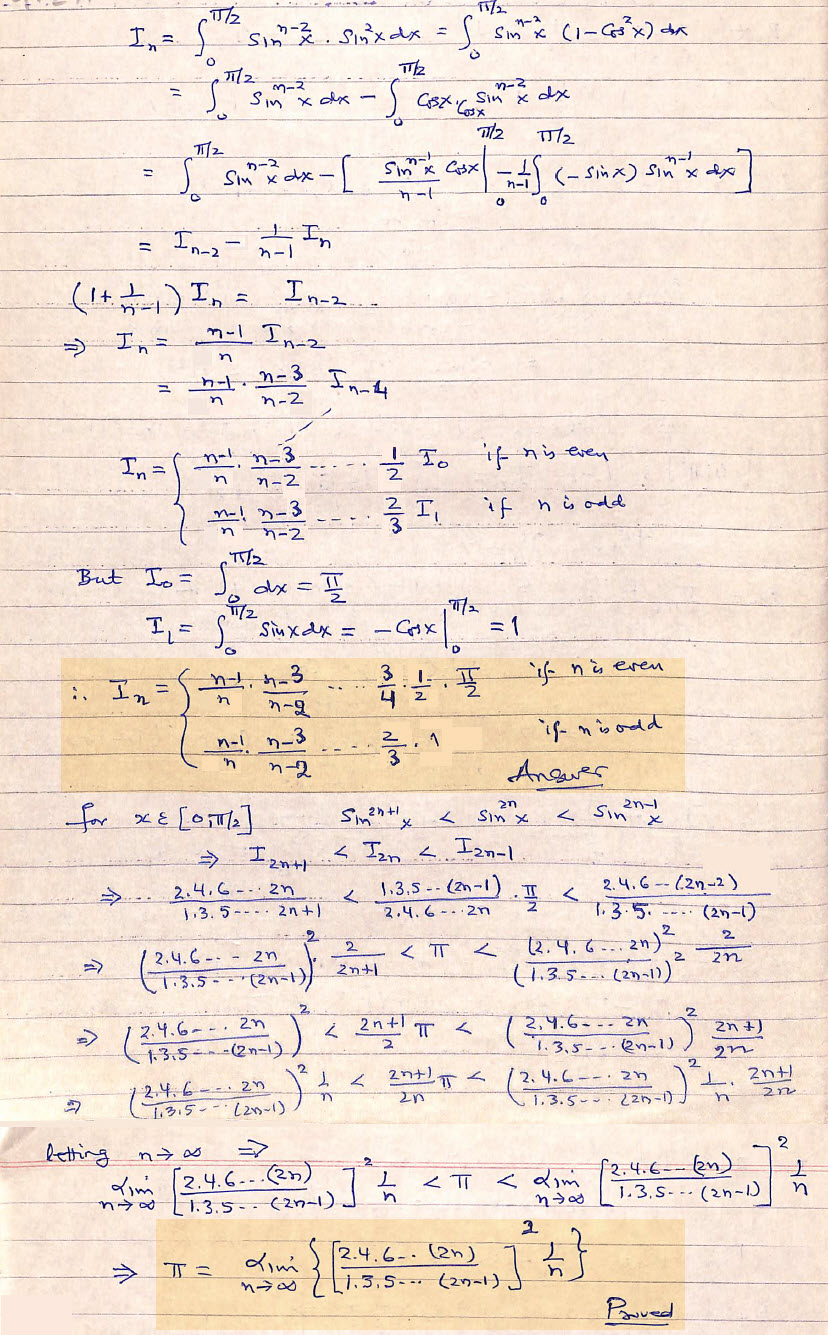 Iₙ = ∫₀^{π/2} Sin^{n-2}x . Sin²x dx = ∫₀^{π/2} Sin^{n-2}x (1 - Cos²x) dx
= ∫₀^{π/2} Sin^{n-2}x dx - ∫₀^{π/2} Cosx. Cosx Sin^{n-2}x dx
= ∫₀^{π/2} Sin^{n-2}x dx - [ Sin^{n-1}x/(n-1) Cosx |₀^{π/2} - 1/(n-1) ∫₀^{π/2} (-Sinx) Sin^{n-1}x dx ]
= I_{n-2} - 1/(n-1) Iₙ
(1 + 1/(n-1)) Iₙ = I_{n-2} ..
⇒ Iₙ = (n-1)/n I_{n-2}
= (n-1)/n . (n-3)/(n-2) I_{n-4}
Iₙ = { (n-1)/n . (n-3)/(n-2) ..... 1/2 I₀ if n is even
(n-1)/n . (n-3)/(n-2) .... 2/3 I₁ if n is odd
But I₀ = ∫₀^{π/2} dx = π/2
I₁ = ∫₀^{π/2} Sinx dx = - Cosx |₀^{π/2} = 1
∴ Iₙ = { (n-1)/n . (n-3)/(n-2) .... 3/4 . 1/2 . π/2 if n is even
(n-1)/n . (n-3)/(n-2) .... 2/3 . 1 if n is odd
Answer
for x ε [0,π/2] Sin^{2n+1}x < Sin^{2n}x < Sin^{2n-1}x
⇒ I_{2n+1} < I_{2n} < I_{2n-1}
⇒ 2.4.6....2n/1.3.5....2n+1 < 1.3.5..(2n-1)/2.4.6...2n . π/2 < 2.4.6--(2n-2)/1.3.5.....(2n-1)
⇒ (2.4.6...2n/1.3.5...(2n-1))² . 2/(2n+1) < π < (2.4.6...2n)²/(1.3.5...(2n-1))² 2/2n
⇒ (2.4.6....2n/1.3.5...(2n-1))² < (2n+1)/2 π < (2.4.6...2n/1.3.5...(2n-1))² (2n+1)/2n
⇒ (2.4.6....2n/1.3.5...(2n-1))² 1/n < (2n+1)/2n π < (2.4.6...2n/1.3.5...(2n-1))² 1/n . (2n+1)/2n
letting n→∞ ⇒
Lim_{n→∞} [2.4.6...(2n)/1.3.5..(2n-1)]² 1/n < π < Lim_{n→∞} [2.4.6--(2n)/1.3.5...(2n-1)]² 1/n
⇒ π = Lim_{n→∞} {[2.4.6..(2n)/1.3.5...(2n-1)]² 1/n}
Proved